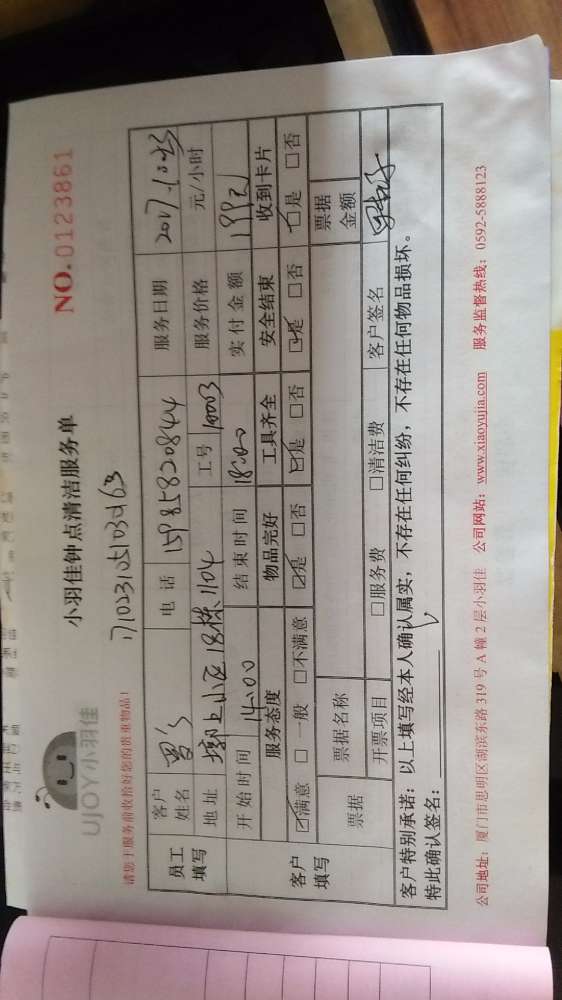 UJOY小羽佳
小羽佳钟点清洁服务单
NO.0123861
请您于服务前收捡好您的贵重物品!
171023105103063
员工填写
客户姓名 电话 15985820844 服务日期 2017.10.23
地址 埭上小区18栋1104 工号 10003 服务价格 元/小时
开始时间 14:00 结束时间 18:00 实付金额 199元
客户填写
服务态度 物品完好 工具齐全 安全结束 收到卡片
☑满意 □一般 □不满意 ☑是 □否 ☑是 □否 ☑是 □否 ☑是 □否
票据 票据名称 票据金额
开票项目 □服务费 □清洁费 客户签名
客户特别承诺:以上填写经本人确认属实,不存在任何纠纷,不存在任何物品损坏。
特此确认签名:
公司地址:厦门市思明区湖滨东路319号A幢2层小羽佳 公司网站:www.xiaoyujia.com 服务监督热线:0592-5888123